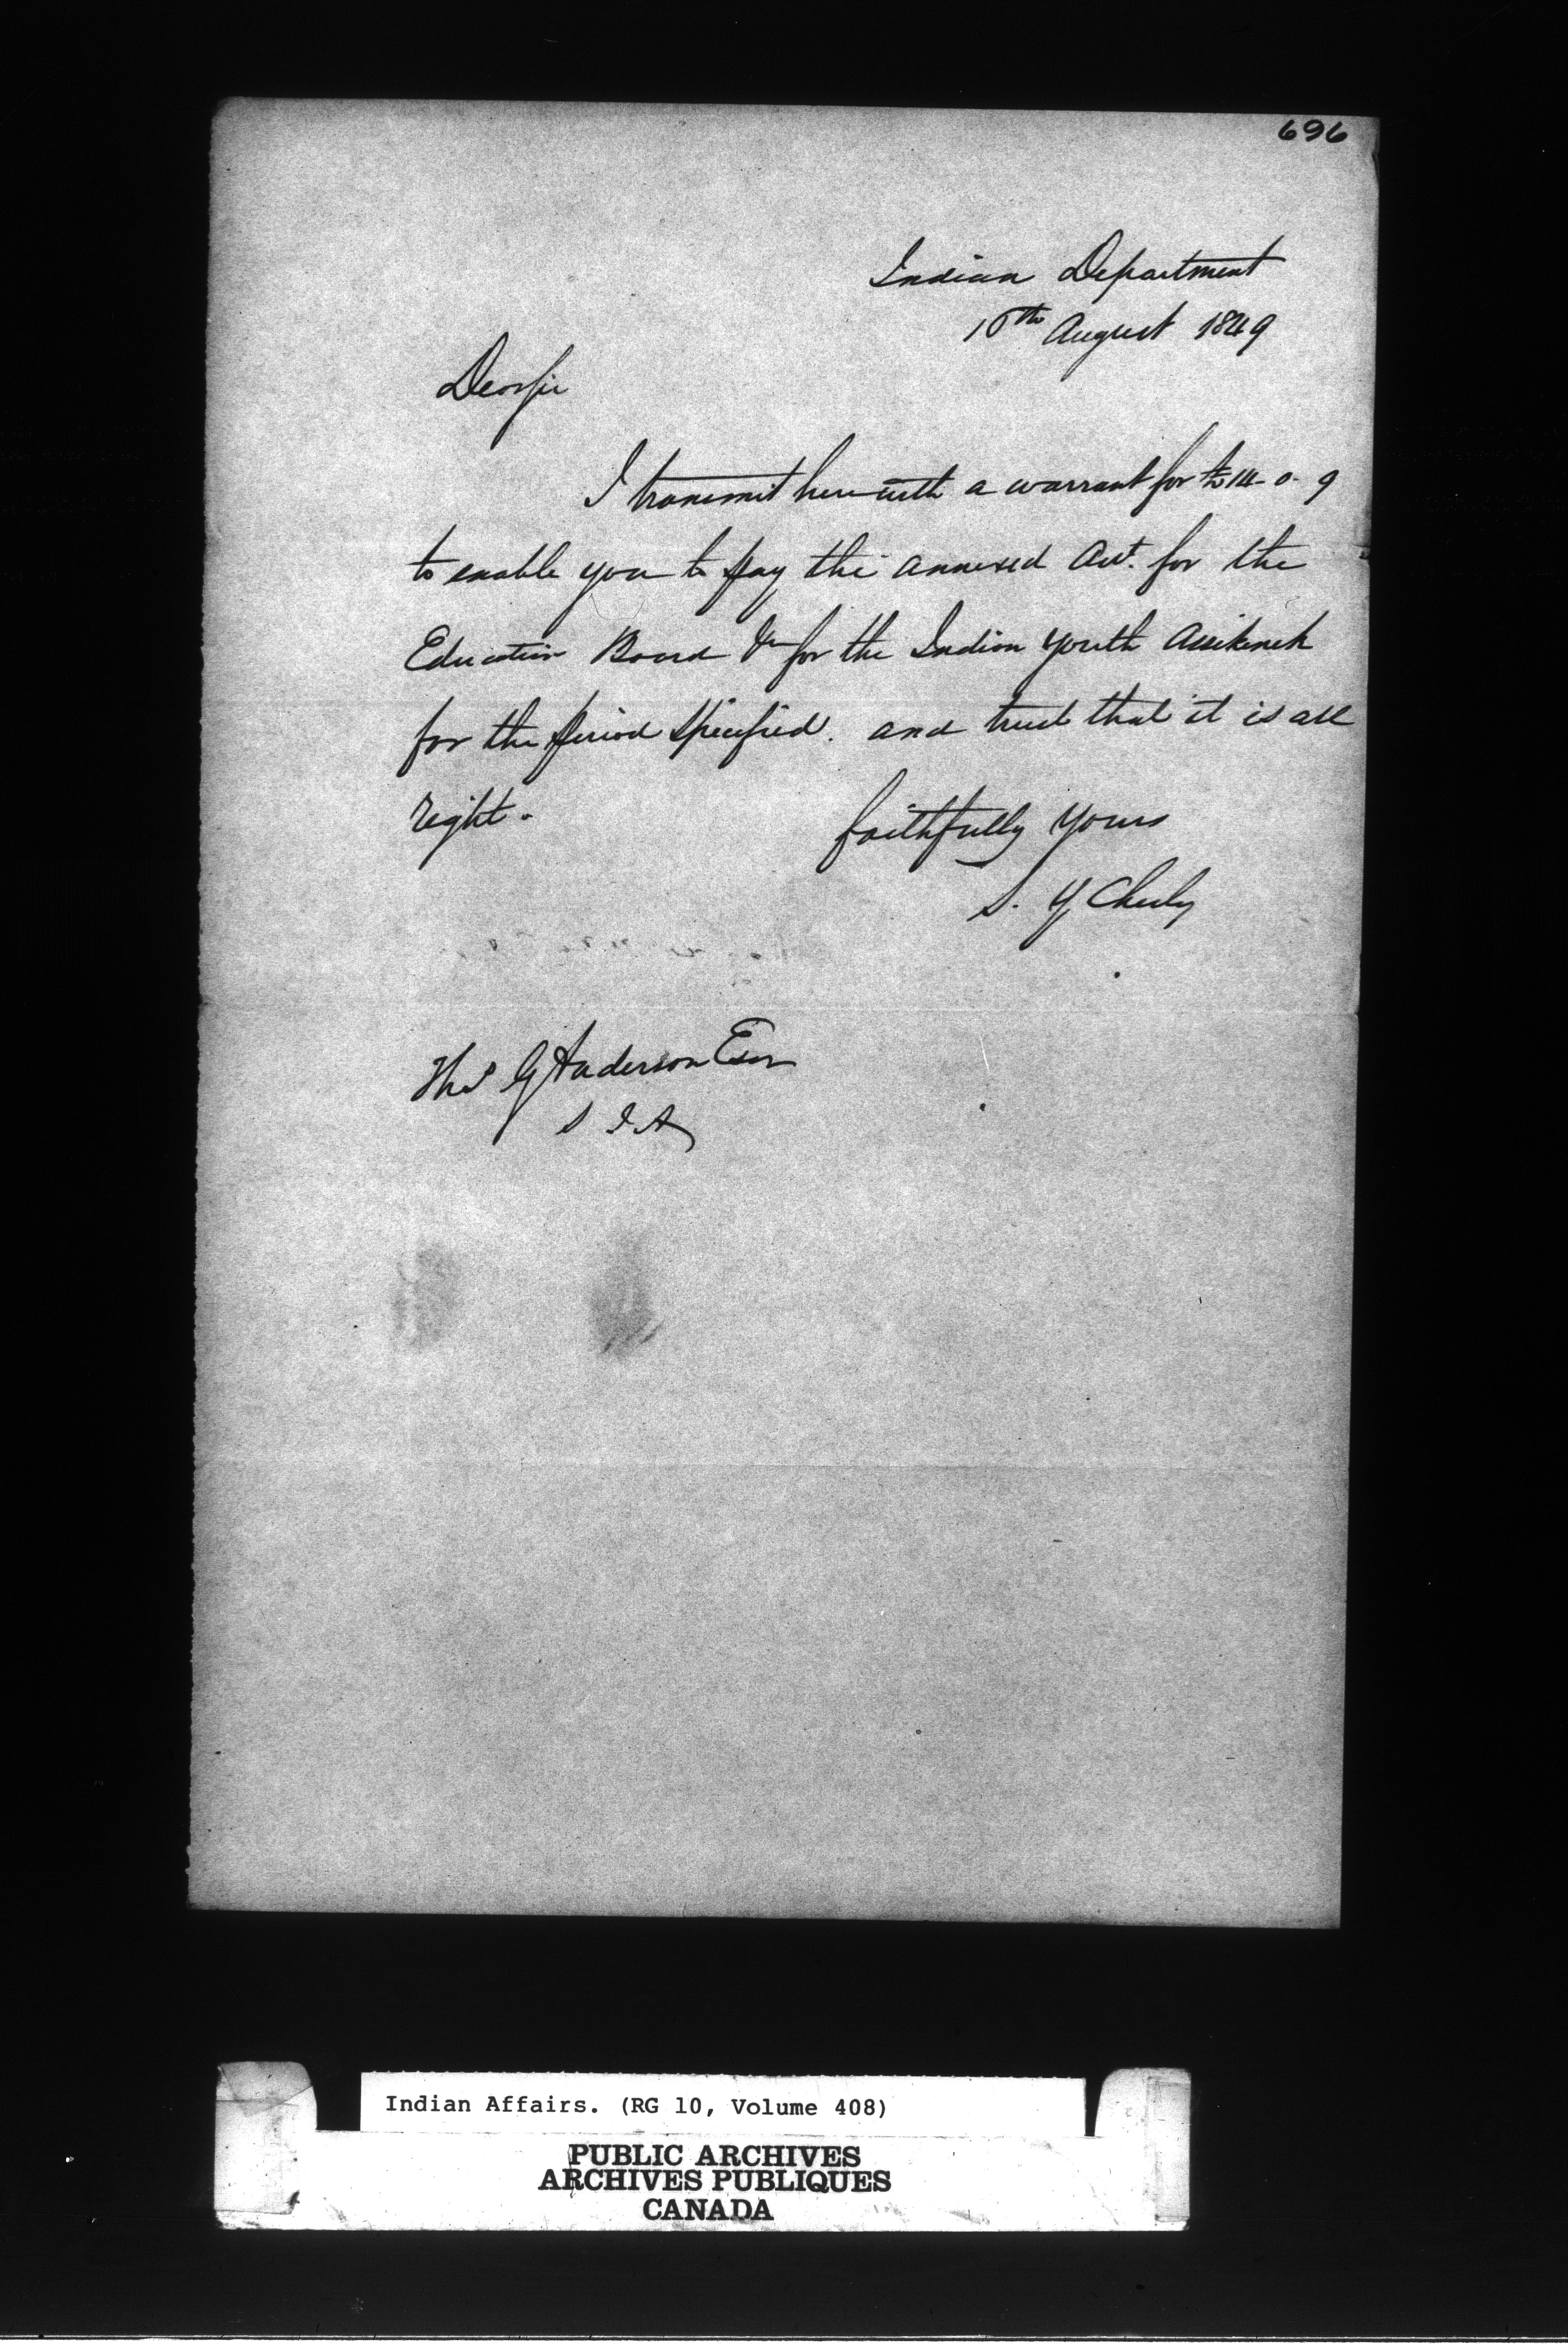 696
Indian Department
10th August 1849
Dear Sir
I transmit herewith a warrant for £14-0-9
to enable you to pay the annexed Act. for the
Education Board &c for the Indian youth Assikinck
for the period specified. and trust that it is all
right.
faithfully yours
S. Y Chesley
Thos G Anderson Esqr
S I A
Indian Affairs. (RG 10, Volume 408)
PUBLIC ARCHIVES
ARCHIVES PUBLIQUES
CANADA